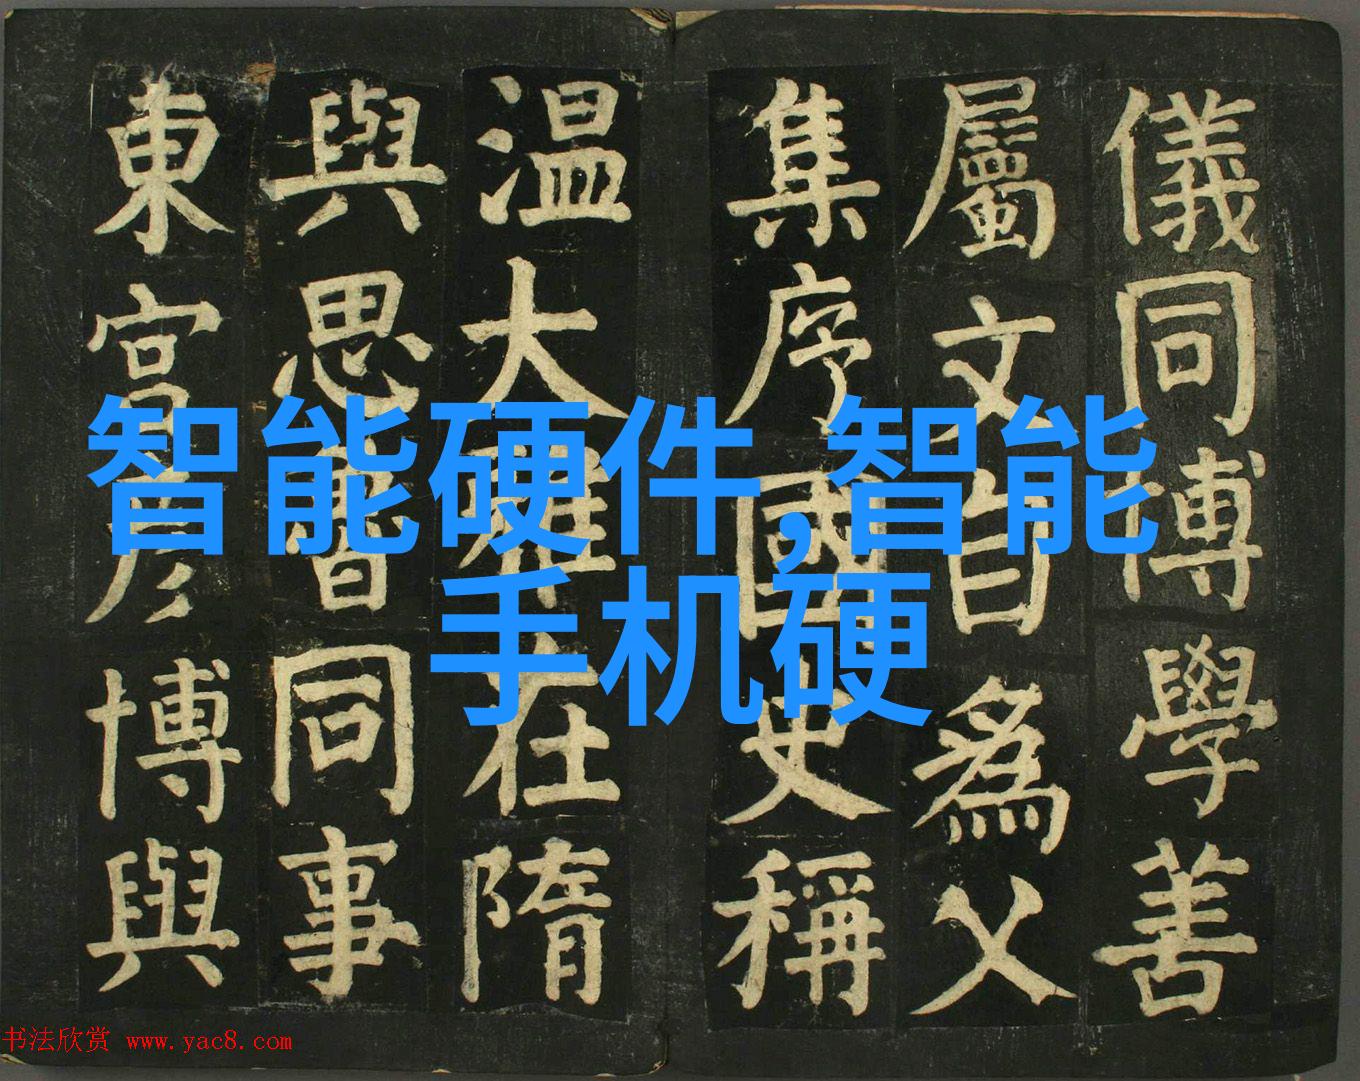 儀同博學善
屬文自爲父
集序國史稱
温大雅在隋
與思魯同事
東宫彦博與
智能硬件,智能
手机硬
书法欣赏 www.yac8.com